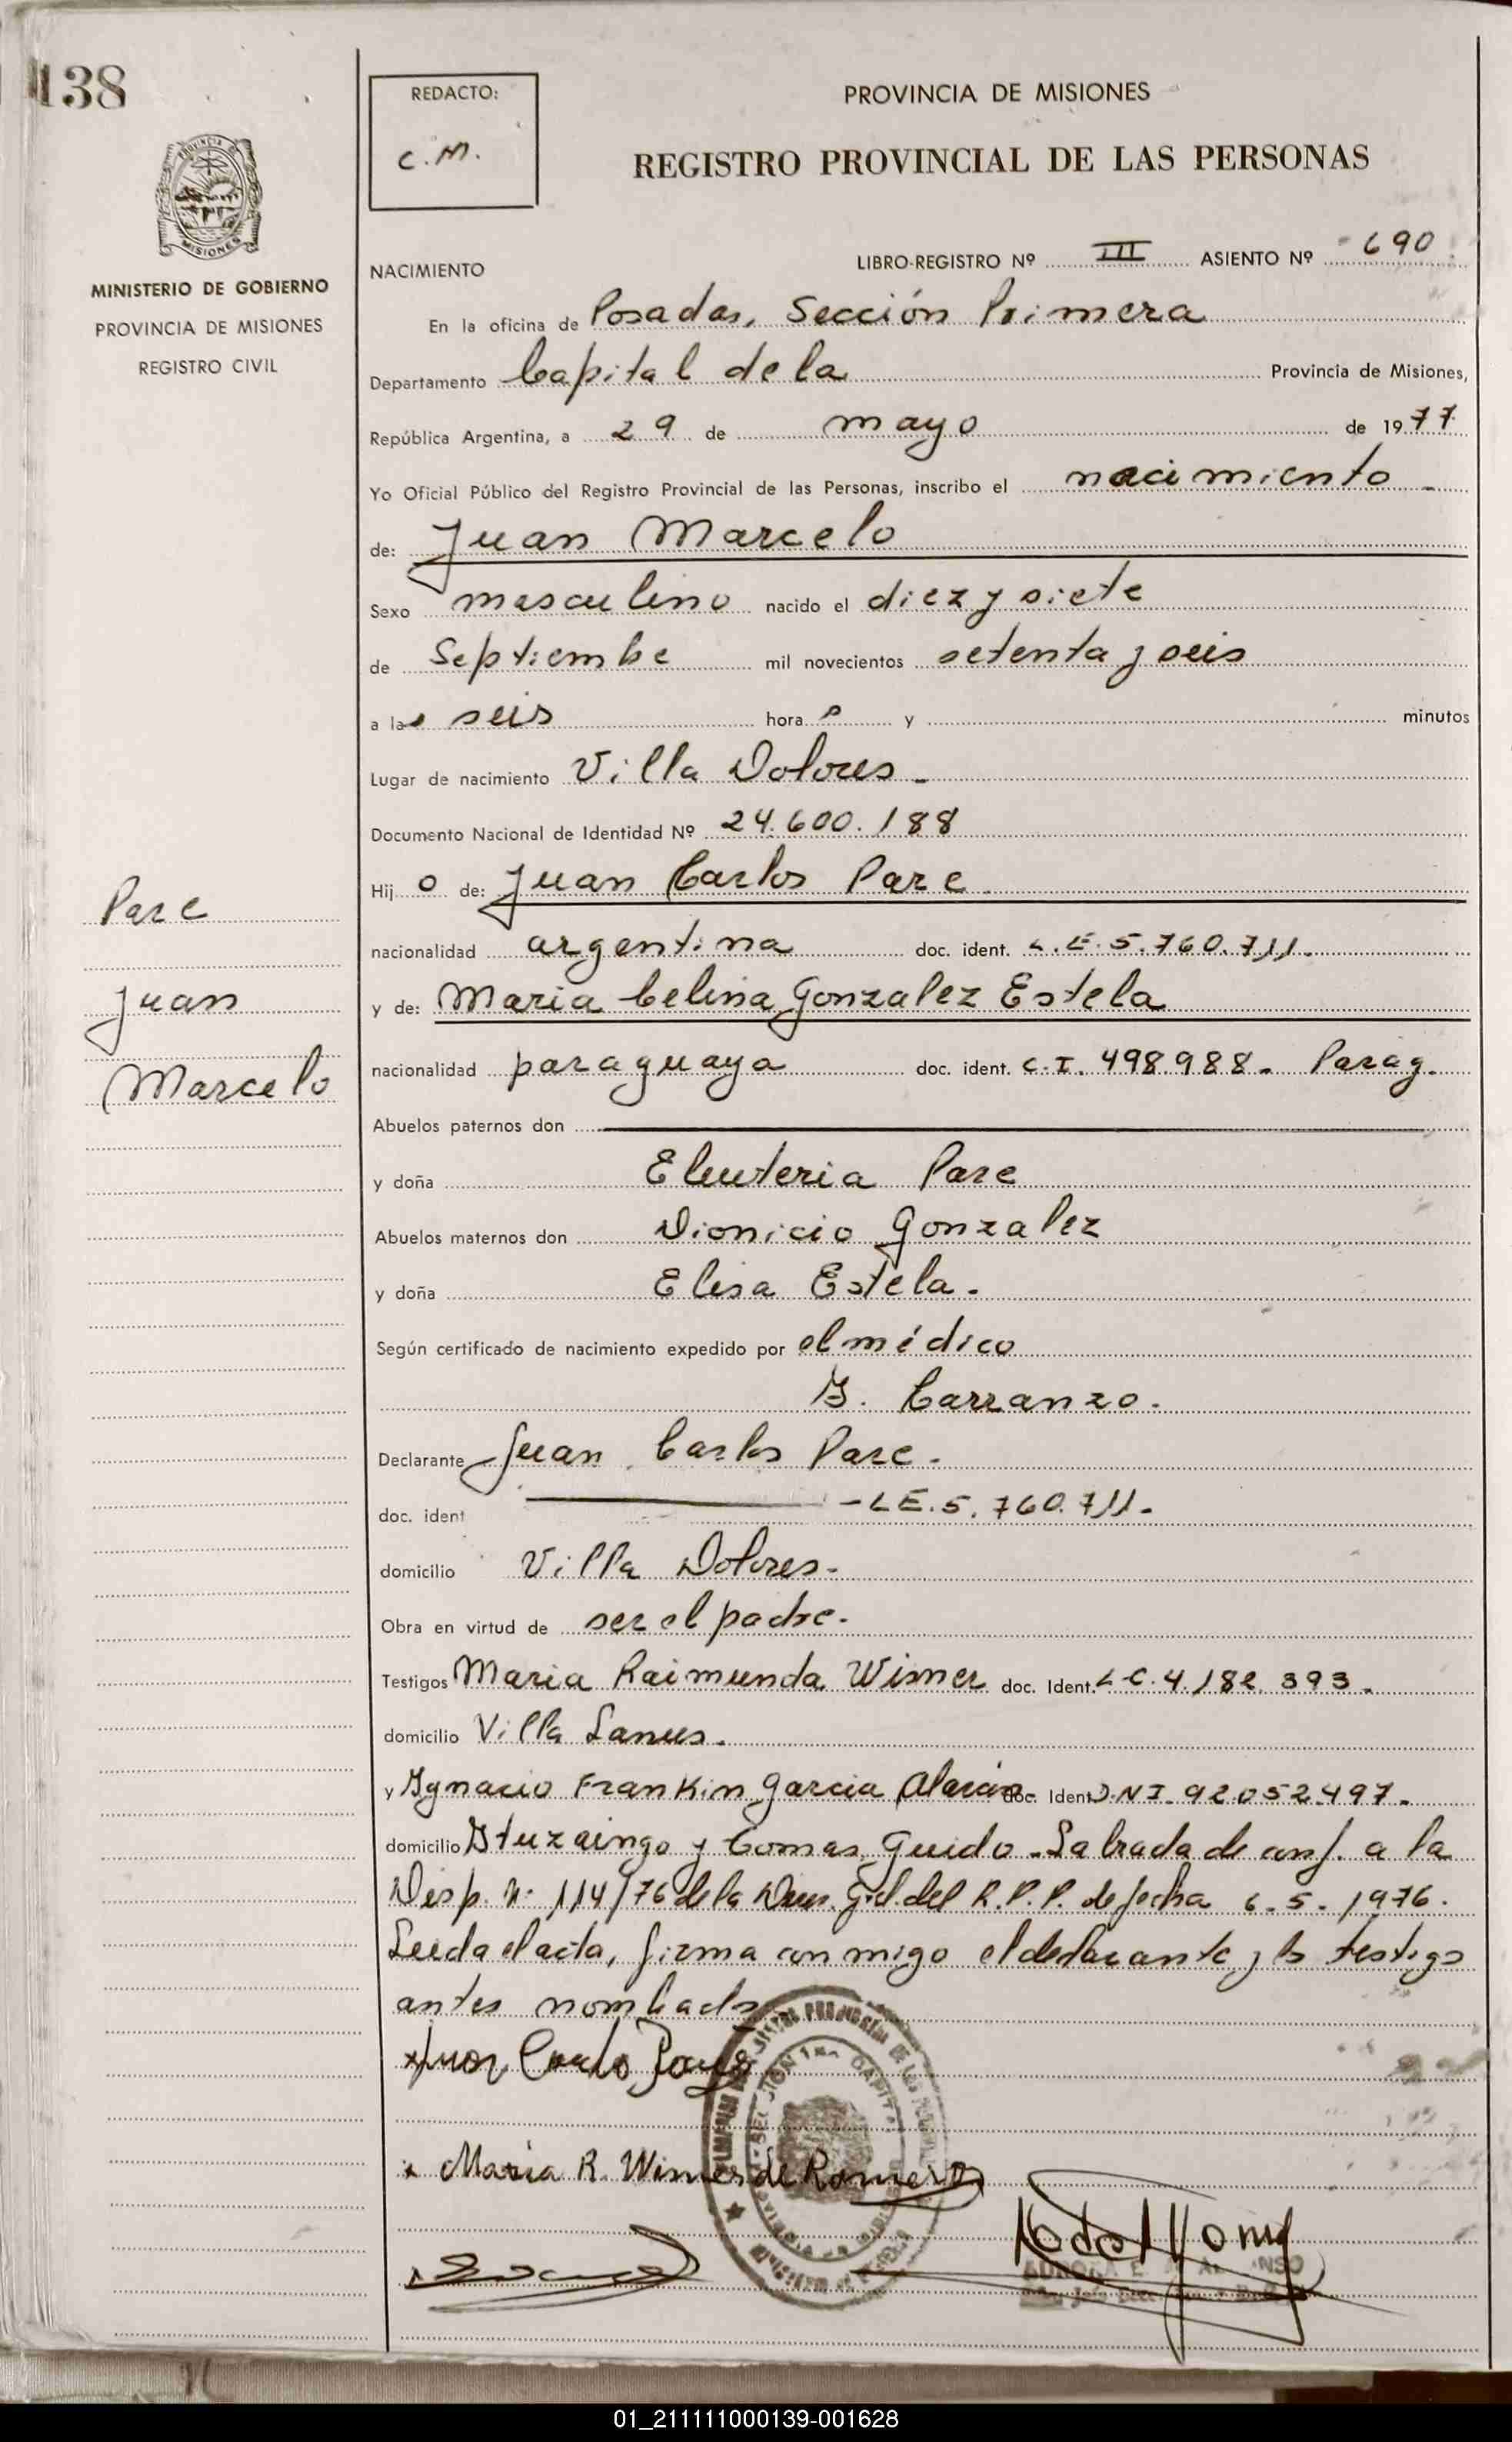 138
REDACTO:
C.M.
PROVINCIA DE MISIONES
REGISTRO PROVINCIAL DE LAS PERSONAS
MISIONES
MINISTERIO DE GOBIERNO
PROVINCIA DE MISIONES
REGISTRO CIVIL
LIBRO-REGISTRO Nº III ASIENTO Nº 690
NACIMIENTO
En la oficina de Posadas, Sección Primera
Departamento Capital de la Provincia de Misiones,
República Argentina, a 29 de mayo de 1977
Yo Oficial Público del Registro Provincial de las Personas, inscribo el nacimiento
de: Juan Marcelo
Sexo masculino nacido el diez y siete
de Septiembe mil novecientos setenta y seis
a las seis horas y minutos
Lugar de nacimiento Villa Dolores
Documento Nacional de Identidad Nº 24.600.188
Hijo de: Juan Carlos Pare
nacionalidad argentina doc. ident. L.E. 5.760.711.
y de: Maria Celina Gonzalez Estela
nacionalidad paraguaya doc. ident. C.I. 498.988. Parag.
Abuelos paternos don
y doña Eleuteria Pare
Abuelos maternos don Dionicio Gonzalez
y doña Elisa Estela.
Según certificado de nacimiento expedido por el médico
Carranzo.
Declarante Juan Carlos Pare.
doc. ident - L E. 5.760.711.
domicilio Villa Dolores.
Obra en virtud de ser el padre.
Testigos Maria Raimunda Wisner doc. Ident. L C. 4.182.393.
domicilio Villa Lanus.
y Ignacio Frankin Garcia doc. Ident D.N.I. 92.052.497.
domicilio Ituzaingo y Tomas Guido. Labrada de conf. a la
Disp. Nº 114/76 de la Direc. Gral. del R.P.P. de fecha 6.5.1976.
Leida el acta, firma conmigo el declarante y los testigos
antes nombrados
Juan Carlo
Maria R. Wisner de Romero
Pare
Juan
Marcelo
01_211111000139-001628